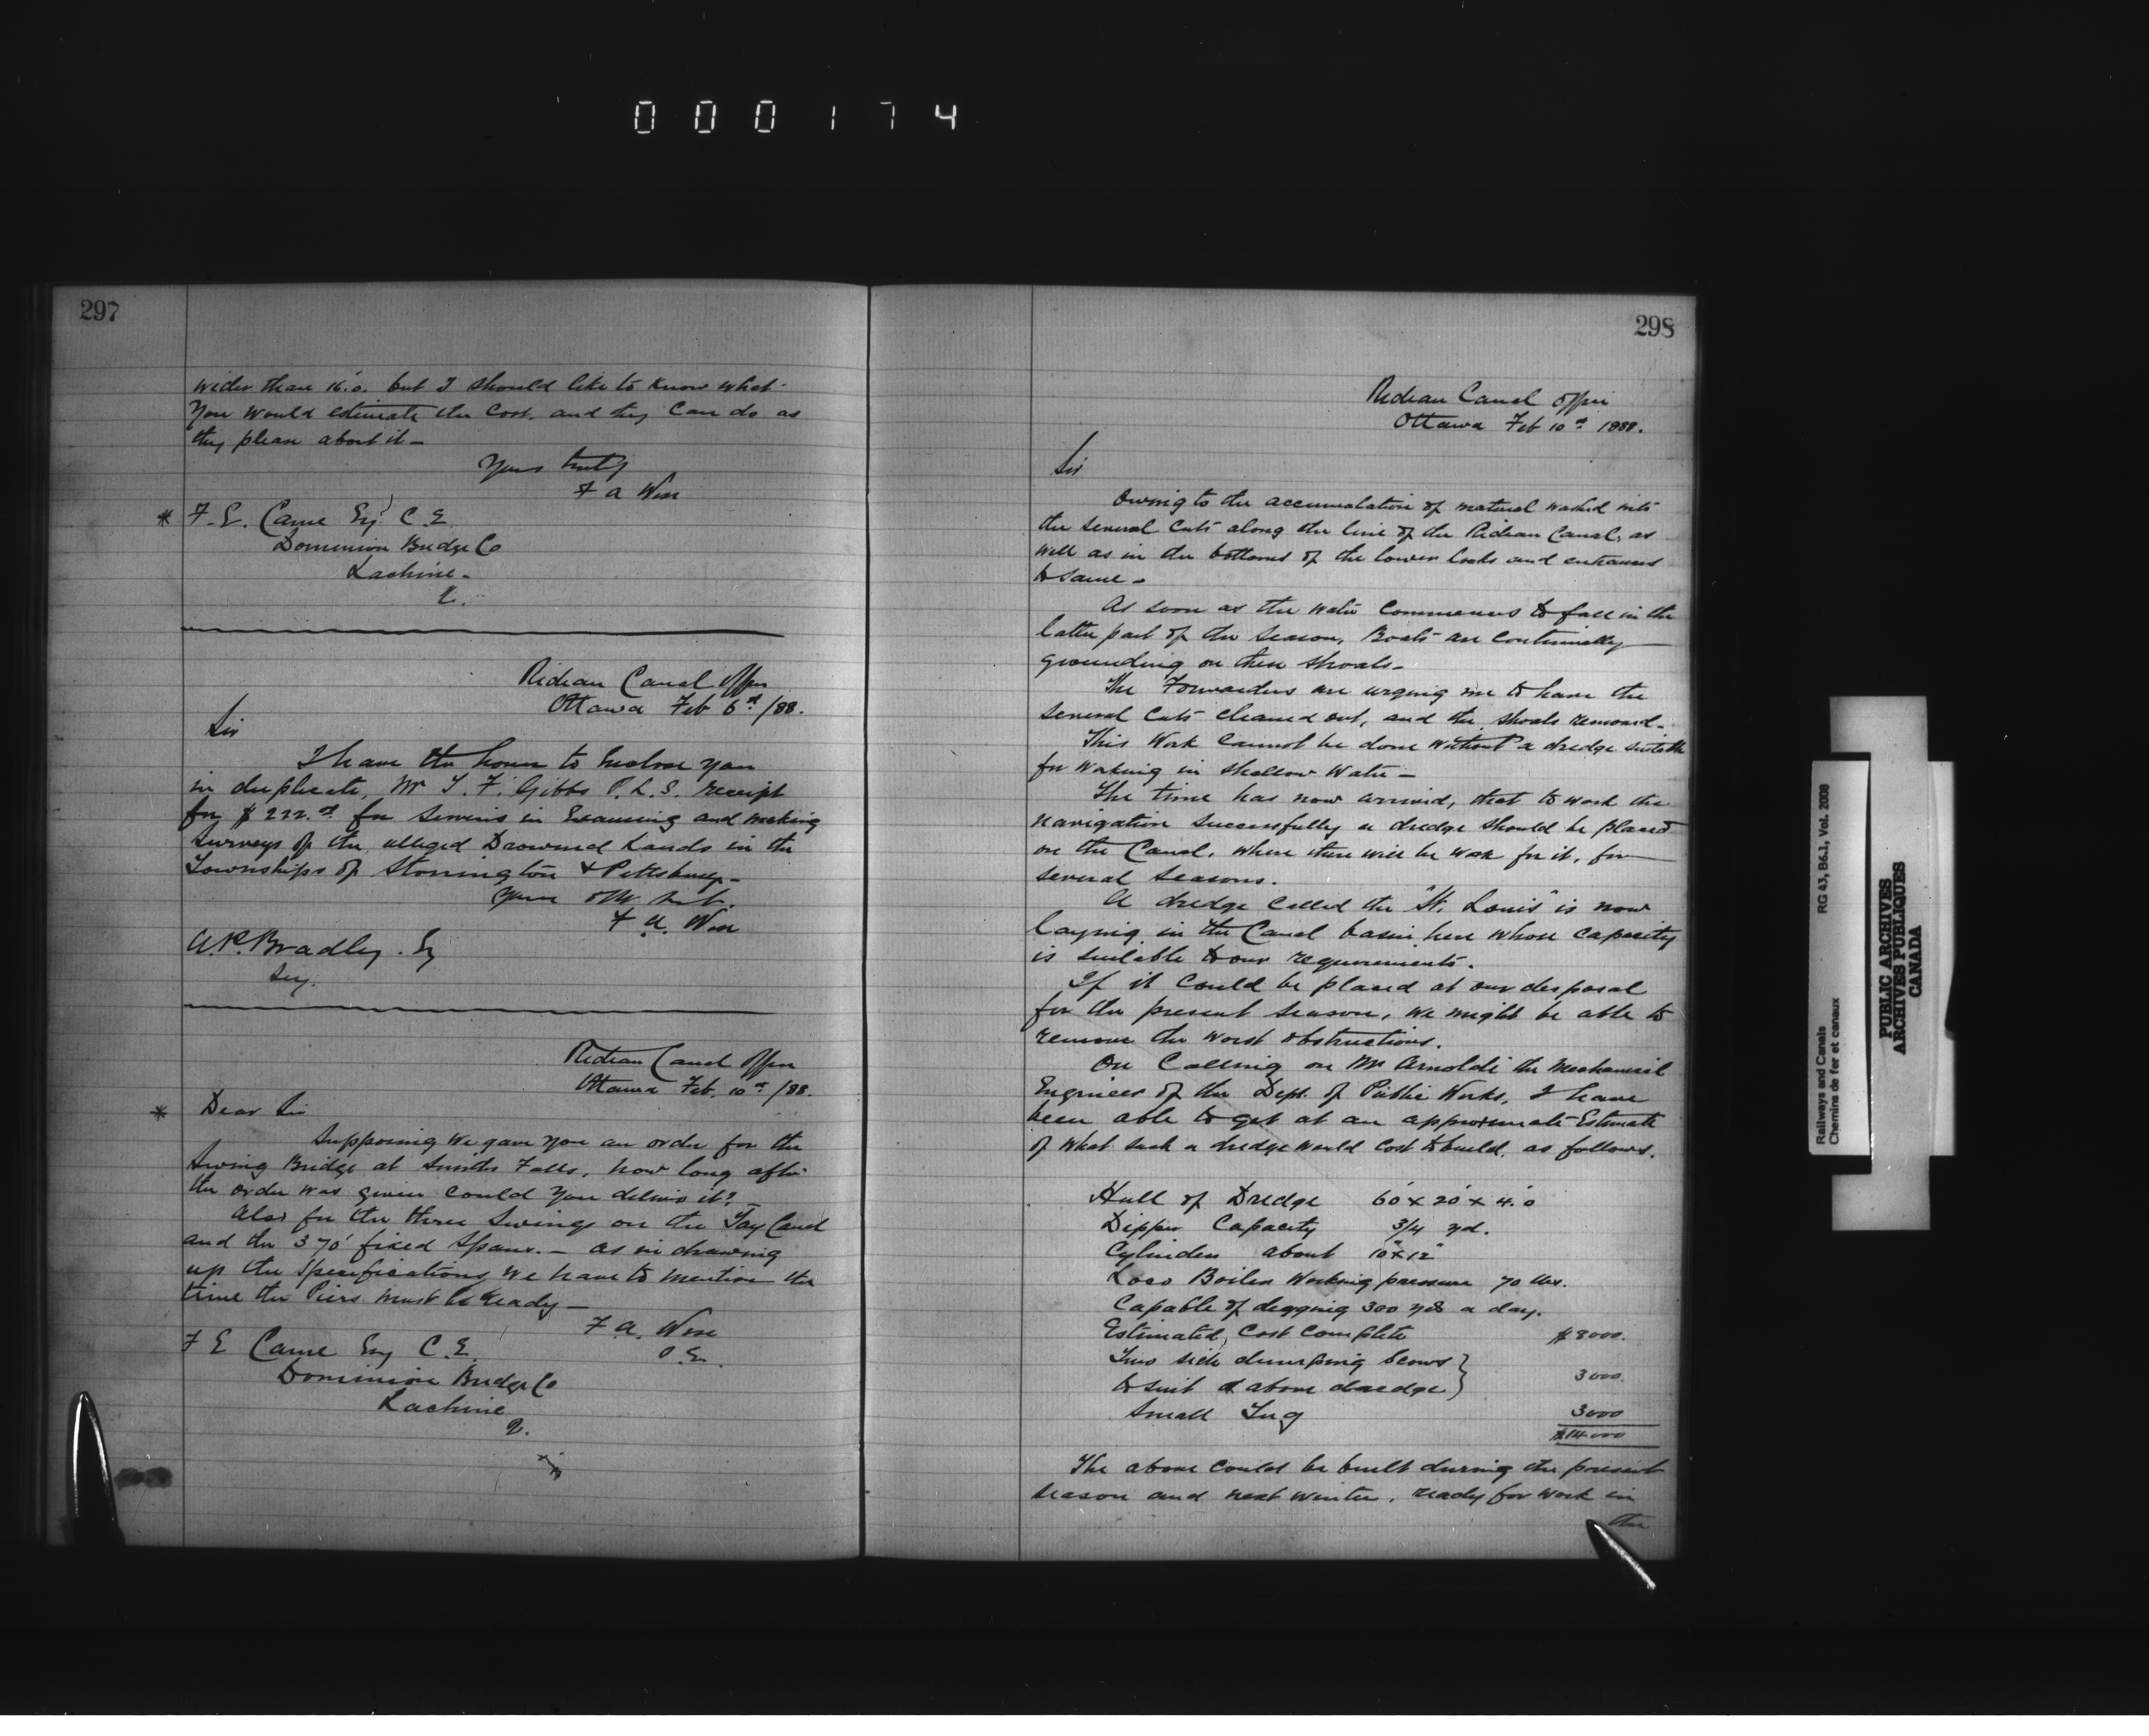 000174
297
wider than 16'.0. but I should like to know what
you would estimate the cost. and they can do as
they please about it –
Yours truly
F A Wise
* F. E. Came Esq C. E.
Dominion Bridge Co
Lachine –
Q.
Rideau Canal Office
Ottawa Feb 6th /88.
Sir
I have the honor to Enclose you
in duplicate, Mr T. F. Gibbs P. L. S. receipt
for $ 222. for services in Examining and making
surveys of the alleged Drowned Lands in the
Townships of Storrington & Pittsburg –
Your obt. Sert.
F. A. Wise
A. P. Bradley. Esq
Secy.
Rideau Canal Office
Ottawa Feb. 10th /88.
* Dear Sir
Supposing we gave you an order for the
Swing Bridge at Smiths Falls, how long after
the order was given could you deliver it? –
Also for the three Swings on the Tay Canal
and the 3 70' fixed Spans. – as in drawing
up the Specifications we have to mention the
time the Piers must be ready –
F. A. Wise
S. E.
F E Came Esq C. E.
Dominion Bridge Co
Lachine
Q.
298
Rideau Canal Office
Ottawa Feb 10th 1888.
Sir
Owing to the accumulation of material washed into
the several cuts along the line of the Rideau Canal, as
well as in the bottoms of the lower locks and entrances
to same –
As soon as the water commences to fall in the
latter part of the season, Boats are continually
grounding on these shoals –
The Forwarders are urging me to have the
several cuts cleaned out, and the shoals removed –
This work cannot be done without a dredge suitable
for working in shallow water –
The time has now arrived, that to work the
navigation successfully a dredge should be placed
on the Canal, where there will be work for it, for
several seasons.
A dredge called the "St. Louis" is now
laying in the Canal basin here whose capacity
is suitable to our requirements.
If it could be placed at our disposal
for the present season, we might be able to
remove the worst obstructions.
On calling on Mr Arnoldi the Mechanical
Engineer of the Dept. of Public Works, I have
been able to get at an approximate Estimate
of what such a dredge would cost to build, as follows.
Hull of Dredge 60' x 20' x 4'.0
Dipper Capacity 3/4 yd.
Cylinders about 10" x 12"
Loco Boiler Working pressure 70 lbs.
Capable of digging 300 yds a day.
Estimated, Cost complete $8000.
Two side dumping scows }
to suit above dredge } 3000.
Small Tug 3000
$14000
The above could be built during the present
season and next winter, ready for work in
the
Railways and Canals RG 43, B6.1, Vol. 2008
Chemins de fer et canaux
PUBLIC ARCHIVES
ARCHIVES PUBLIQUES
CANADA